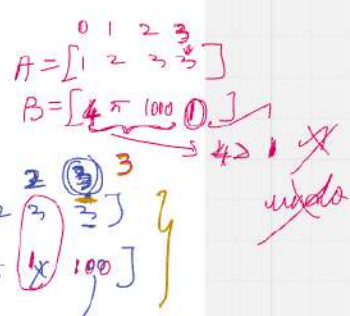 0 1 2 3
A = [ 1 2 3 3 ]
B = [ 4 π 1000 1 ]
4> 1 x
undo
2 3 3
2 3 3 ]
1 x 100 ]